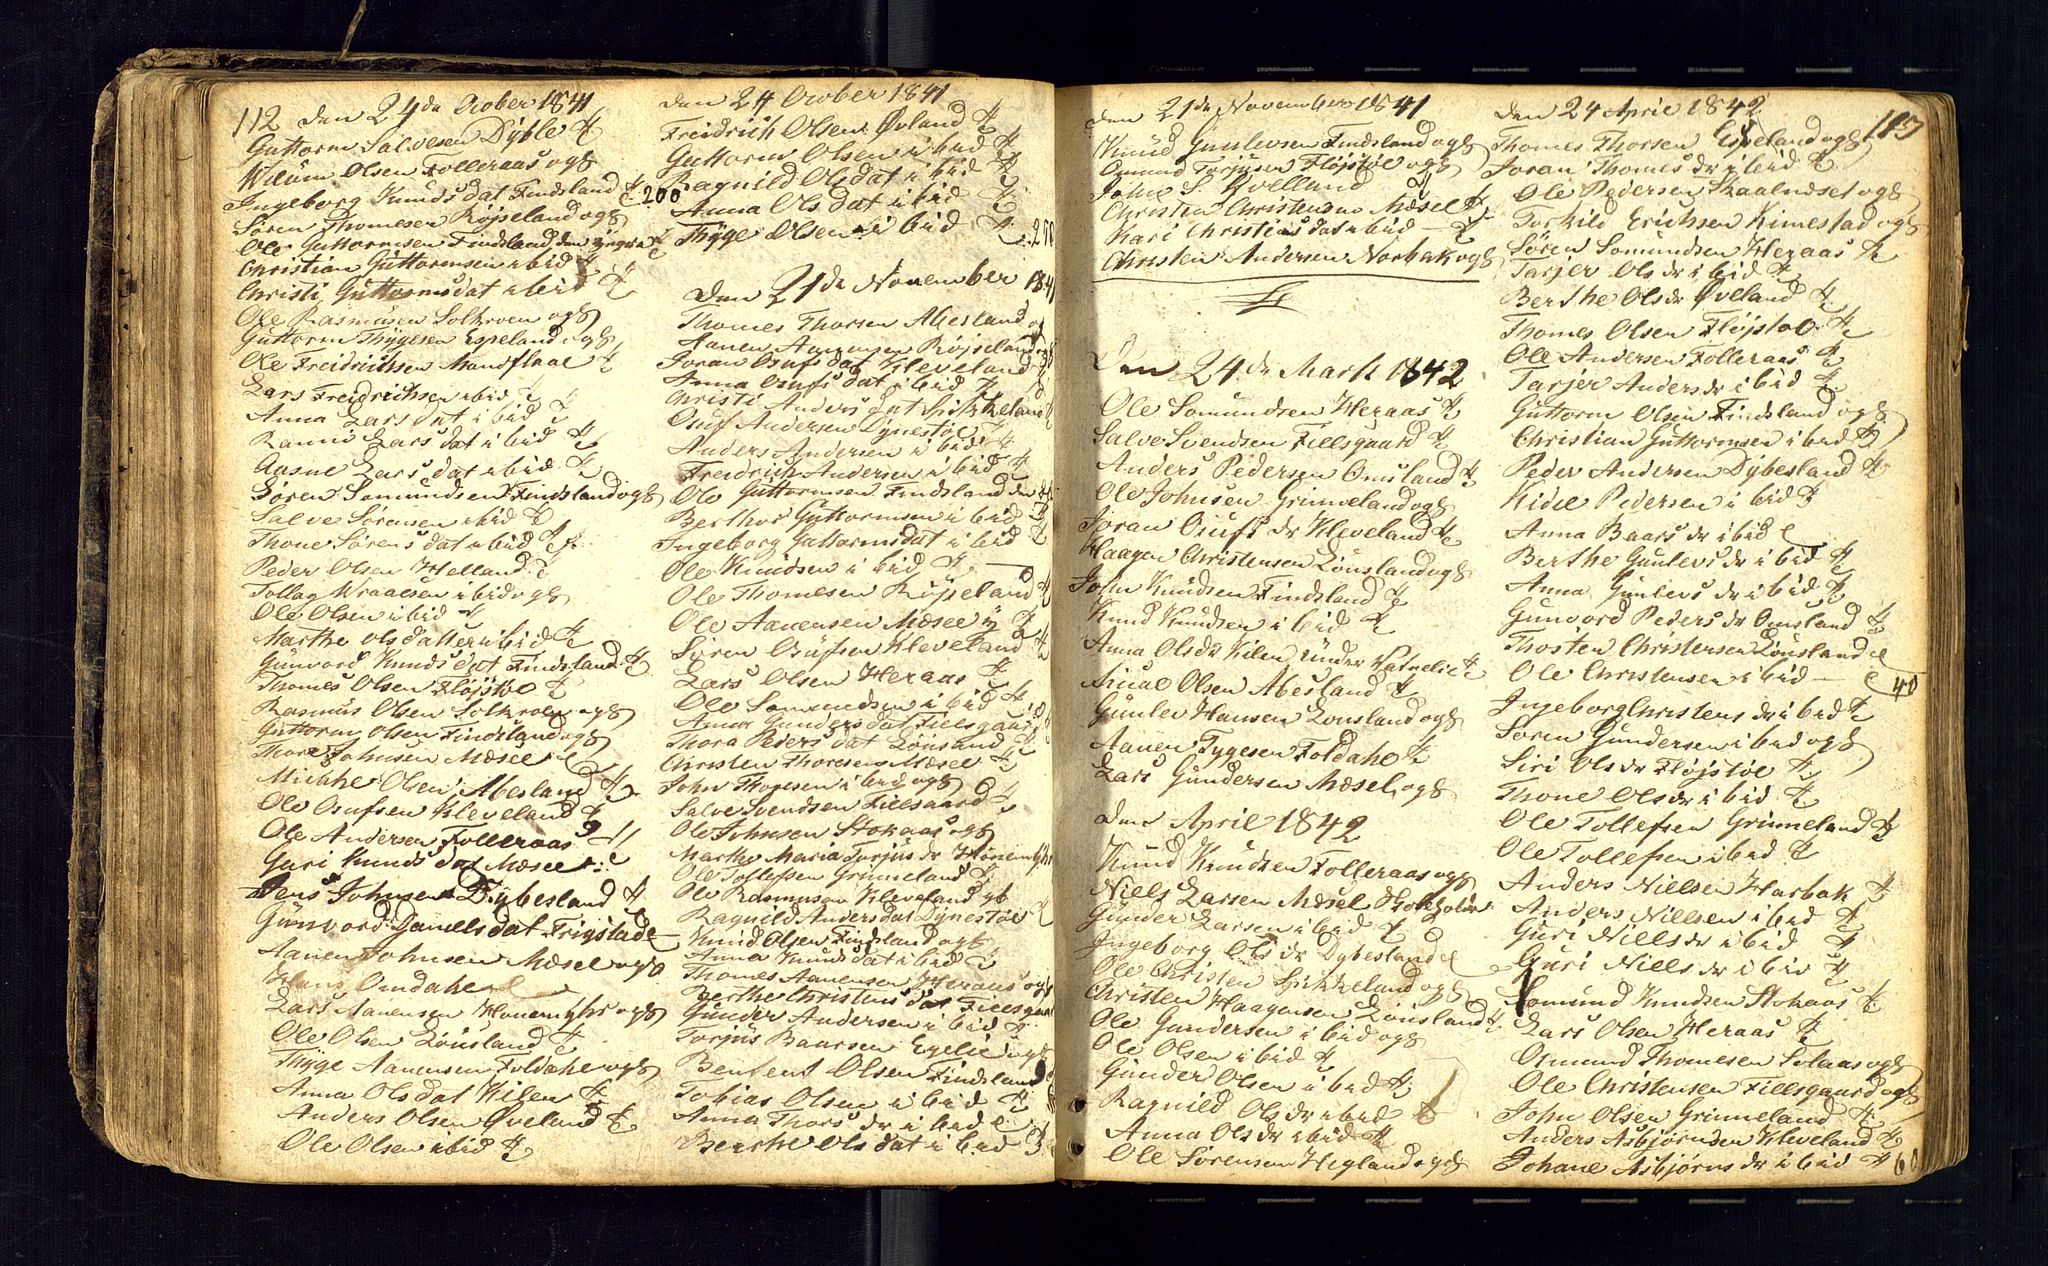 112 den 24de Octber 1841
Guttorm Salvesen Dyble
Wilum Olsen Folleraas og
Ingeborg Knudsdat Findsland 200
Søren Thomesen Røjseland og
Ole Guttormsen Findsland den yngre
Christian Guttormsen ibid
Christi Guttormsdat ibid
Ole Rasmusen Solkroen og
Guttorm Thygesen Espeland og
Ole Freidrichsen Mandflaae
Lars Freidrichsen ibid
Anna Larsdat ibid
Larsdat ibid
Aasne Larsdat ibid
Søren Somundsen Findsland og
Salve Sørensen ibid
Thone Sørensdat ibid
Peder Olsen Helland
Tollag Wraalsen ibid og
Ole Olsen ibid
Marthe Olsdatter ibid
Gunvord Knudsdat Findsland
Thomes Olsen Fløjstøe
Rasmus Olsen Solkroen og
Guttorm Olsen Findsland og
Thore Johnsen Mæsel
Michhel Olsen Abesland
Ole Osufsen Kleveland
Ole Andersen Folleraas
Guri Knudsdat Mæsel
Jens Johnsen Dybesland
Gunvord Danielsdat Frigstad
Aanen Johnsen Mæsel og
Hans Omdahl
Lars Aanensen Honemyhr og
Ole Olsen Lønsland
Thyge Aanensen Foldahl og
Anna Olsdat Kilen
Anders Olsen Øveland
Ole Olsen ibid
den 24 Octber 1841
Freidrich Olsen Øvland
Guttorm Olsen ibid
Ragnild Olsdat ibid
Anna Olsdat ibid
Thyge Olsen ibid
Den 21de November 1841
Thomes Thorsen Abesland og
Aanen Aanensen Røjseland og
Joran Osufsdat Kleveland
Anna Osufsdat ibid
Christi Andersdat
Osuf Andersen Dynestøl
Anders Andersen ibid
Freidrich Andersen ibid
Ole Guttormsen Findsland den
Berthor Guttormsen ibid
Ingeborg Guttormsdat ibid
Ole Knudsen ibid
Ole Thomesen Røjseland
Ole Aanensen Mæsel
Søren Osufsen Kleveland
Lars Olsen Heraas
Ole Somundsen ibid
Anna Gundersdat Fillsgaar
Thora Pedersdat Lønsland
Christen Thoresen Mæsel
John Thoresen ibid og
Salve Svendsen Fillsgaard
Ole Johnsen Stokaas og
Marthe Maria Torjus dr Honemyhr
Ole Tollefsen Grimeland
Ole Rasmusen Kleveland
Ragnild Andersdat Dynestøl
Knud Olsen Findsland og
Anna Knudsdat ibid
Thomes Aanensen Heraas og
Berthe Christensdat Fillsgaar
Gunder Andersen ibid
Torjus Baarsen Egelie og
Bentent Olsen Findsland
Tobias Olsen ibid
Anna Thors dr ibid
Berthe Olsdat ibid
den 21de November 1841
Knud Gunlevsen Findsland og
Omund Torjusen Fløjstøe og
John S. Qvelland
Christen Christensen Mæsel
Kari Christensdat ibid
Christen Andersen Norbak og
Den 24de Marts 1842
Ole Somundsen Heraas
Salve Svendsen Fillsgaard
Anders Pedersen Omsland
Ole Johnsen Grimeland og
Joran Osufs dr Kleveland
Haagen Christensen Lonsland og
John Knudsen Findsland
Knud Knudsen ibid
Anna Olsdr Kilen under
Olsen Abesland
Gunlev Hansen Lonsland og
Aanen Tygesen Foldahl
Lars Gundersen Mæsel og
Den April 1842
Knud Knudsen Folleraas og
Niels Larsen Mæsel
Gunder Larsen ibid
Ingeborg Ols dr Dybesland
Ole Christen Likkeland og
Christen Haagensen Lonsland
Ole Gundersen ibid og
Ole Olsen ibid
Gunder Olsen ibid
Ragnild Ols dr ibid
Anna Ols dr ibid
Ole Sørensen Hegland og
den 24 April 1842 113
Thomes Thorsen Espeland og
Joran Thomes dr ibid
Ole Pedersen og
Torkild Erichsen Kimestad og
Søren Somundsen Heraas
Tarjer Ols dr ibid
Berthe Ols dr Øveland
Thomes Olsen Fløjstøe
Ole Andersen Folleraas
Tarjer Anders dr ibid
Guttorm Olsen Findsland og
Christian Guttormsen ibid
Peder Andersen Dybesland
Kidel Pedersen ibid
Anna Baars dr ibid
Berthe Gunlevs dr ibid
Anna Gunlevs dr ibid
Gunvord Peders dr Omsland
Thosten Christensen Lonsland
Ole Christensen ibid 40
Ingeborg Christens dr ibid
Søren Gundersen ibid og
Siri Ols dr Fløjstøe
Thone Ols dr ibid
Ole Tollefsen Grimeland
Ole Tollefsen ibid
Anders Nielsen Harbak
Anders Nielsen ibid
Guri Niels dr ibid
Guri Niels dr ibid
Somund Knudsen Stokaas
Lars Olsen Heraas
Osmund Thomesen Solaas og
Ole Christensen Fillsgaard og
John Olsen Grimeland
Anders Asbjørnsen Kleveland
Johane Asbjørns dr ibid 60